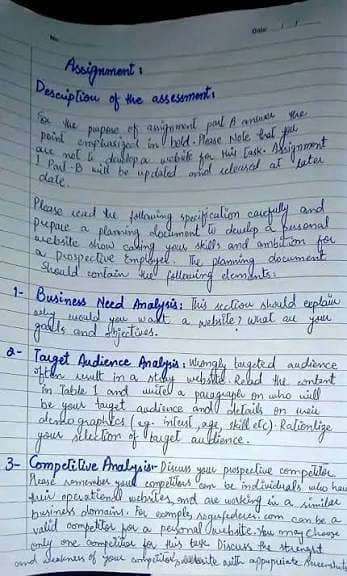 No.
Date: / /
Assignment:
Description of the assessment:
For the purpose of assignment part A answer the
point emphasized in bold. Please Note that you
are not to develop a website for this task. Assignment
1 Part-B will be updated and released at later
date.
Please read the following specification carefully and
prepare a planning document to develop a personal
website show casing your skills and ambition for
a prospective employer. The planning document
should contain the following elements:
1- Business Need Analysis: This section should explain
why would you want a website? What are your
goals and objectives.
2- Target Audience Analysis: Wrongly targeted audience
often result in a website. Read the content
in Table 1 and write a paragraph on who will
be your target audience and details on their
demographics (eg. interest, age, skill etc). Rationlize
your selection of target audience.
3- Competitive Analysis- Discuss your prospective competitor.
Please remember your competitors can be individuals who have
their operational websites, and are working in a similar
business domains. For example, can be a
valid competitor for a personal website. You may choose
only one competitor for this task. Discuss the strenght
and weakness of your competitors website with appropriate